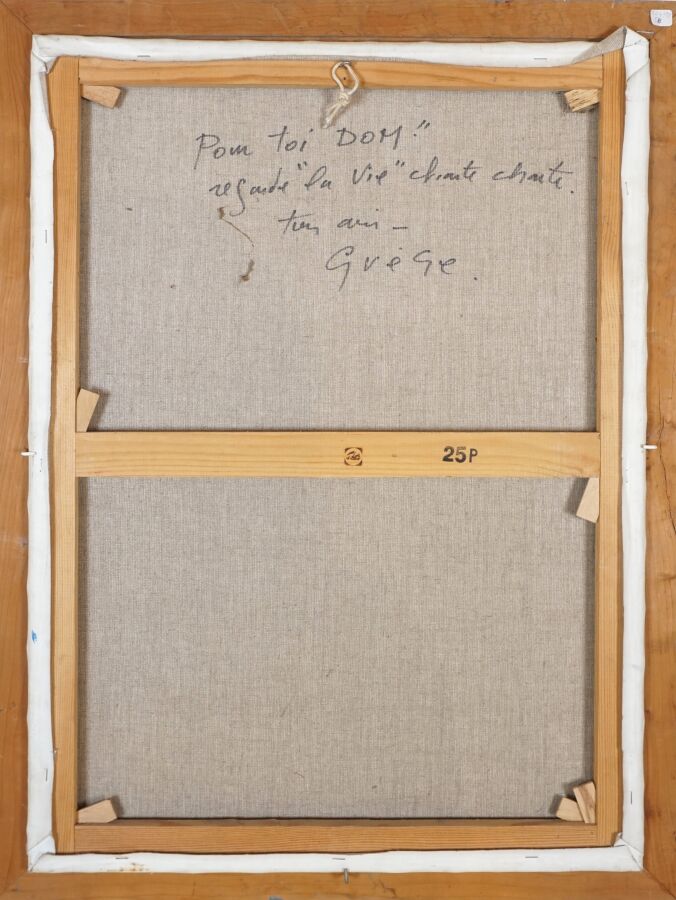 Pour toi DOM"
regarde "la vie" chante chante.
ton ami -
GrèGe.
25P